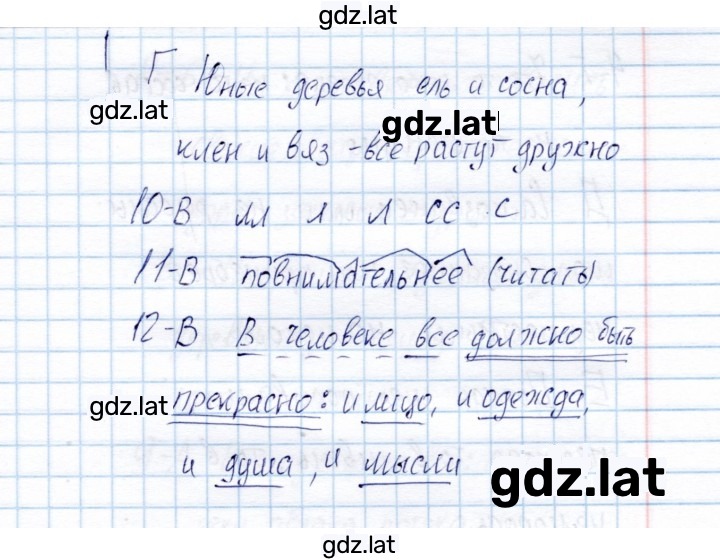 gdz.lat
Г Юные деревья ель и сосна,
gdz.lat
gdz.lat
клен и вяз - все растут дружно
10-В лл л л сс с
11-В повнимательнее (читать)
12-В В человеке все должно быть
gdz.lat
прекрасно: и лицо, и одежда,
и душа, и мысли
gdz.lat
gdz.lat